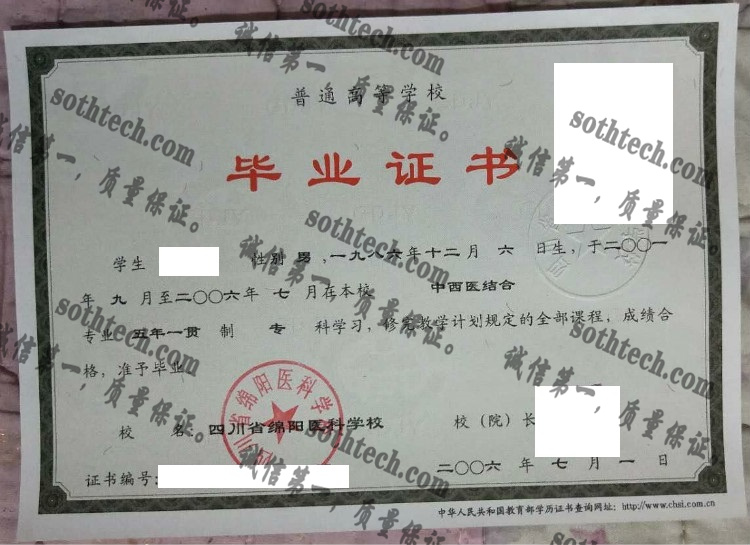 普通高等学校
毕业证书
学生 性别 男,一九八六年十二月 六 日生,于二〇〇一
年 九 月至二〇〇六年 七 月在本校 中西医结合
专业 五年一贯 制 专 科学习,修完教学计划规定的全部课程,成绩合
格,准予毕业
四川省绵阳医科学
校 名:四川省绵阳医科学校
校(院)长
二〇〇六 年 七 月 一 日
证书编号:
中华人民共和国教育部学历证书查询网址:http://www.chsi.com.cn
sothtech.com
诚信第一,质量保证。
sothtech.com
诚信第一,质量保证。
sothtech.com
诚信第一,质量保证。
sothtech.com
诚信第一,质量保证。
sothtech.com
诚信第一,质量保证。
sothtech.com
诚信第一,质量保证。
sothtech.com
诚信第一,质量保证。
sothtech.com
诚信第一,质量保证。